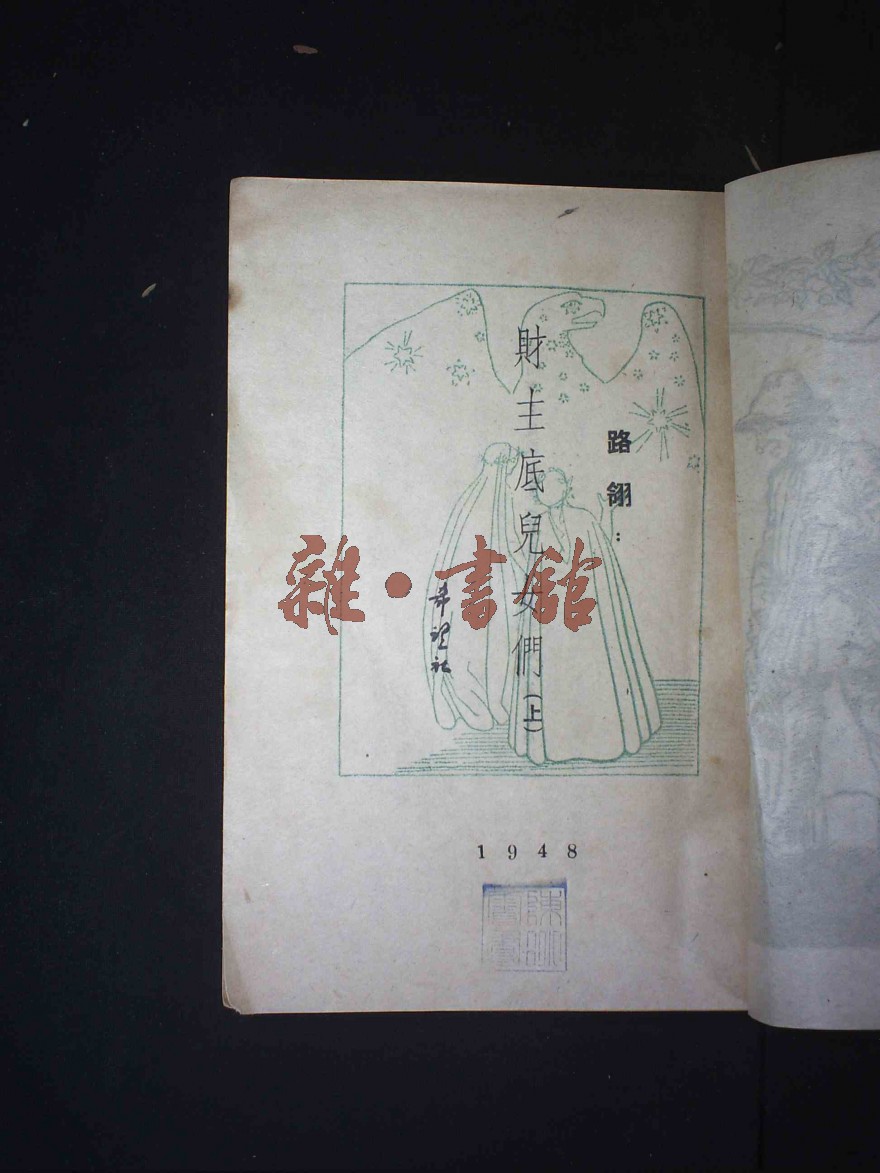 路翎：
財主底兒女們（上）
希望社
1948
雜·書館